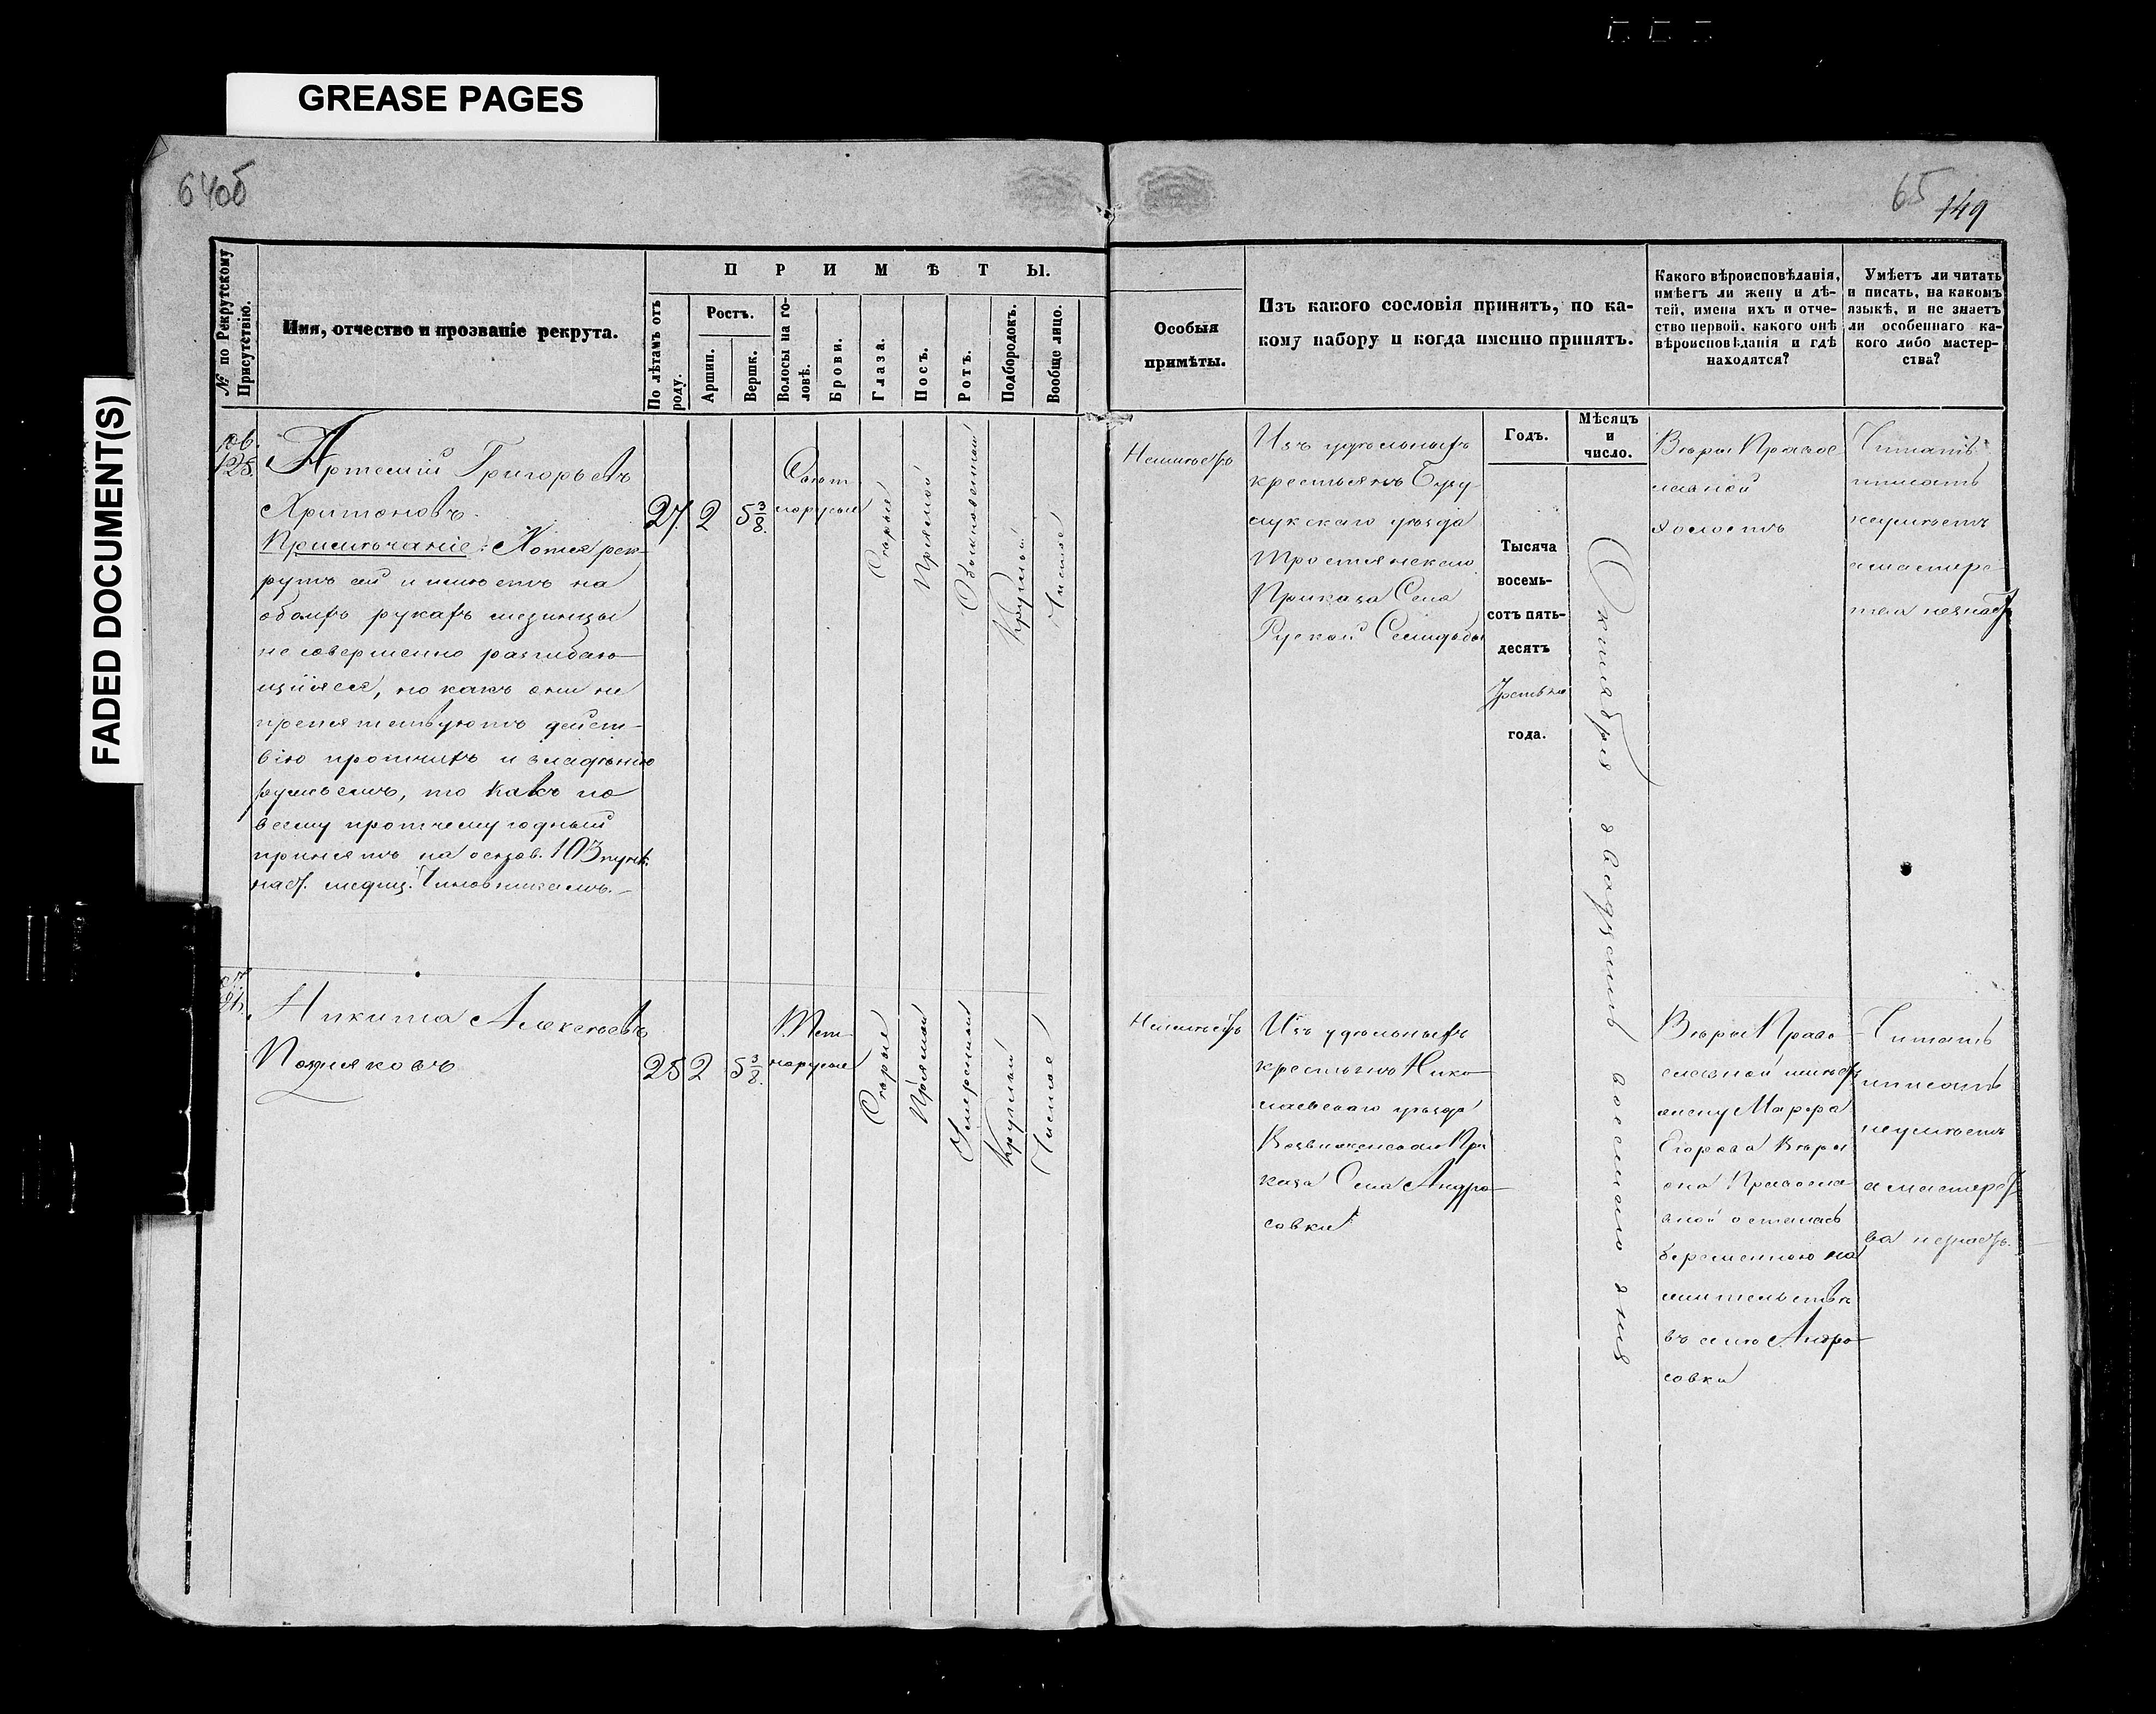 GREASE PAGES
FADED DOCUMENT(S)
64об
65
149
№ по Рекрутскому Присутствію.
Имя, отчество и прозваніе рекрута.
ПРИМѢТЫ.
По лѣтамъ отъ роду.
Ростъ.
Аршин.
Вершк.
Волосы на головѣ.
Брови.
Глаза.
Носъ.
Ротъ.
Подбородокъ.
Вообще лицо.
Особыя
примѣты.
Изъ какого сословія принятъ, по ка-
кому набору и когда именно принятъ.
Годъ.
Мѣсяцъ
и
число.
Какого вѣроисповѣданія,
имѣетъ ли жену и дѣ-
тей, имена ихъ и отче-
ство первой, какого онѣ
вѣроисповѣданія и гдѣ
находятся?
Умѣетъ ли читать
и писать, на какомъ
языкѣ, и не знаетъ
ли особеннаго ка-
кого либо мастер-
ства?
125.
Артемій Григорьевъ
Харитоновъ.
Примѣчаніе: Хотя рек-
рутъ сей и имѣетъ на
обоихъ рукахъ мизинцы
не совершенно разгибаю-
щіяся, но какъ они не
препятствуютъ дейст-
вію протчихъ и владѣнію
ружьемъ, то какъ по
всему протчему годный
принятъ на основ. 103 пунк.
наст. медиц. Чиновникамъ.
27.
2
5 3/8.
Свѣт
лорусые
Сѣрые
Прямой
Обыкновенный
Круглый
Чистое
Неимѣетъ
Изъ удѣльныхъ
крестьянъ Бузу
лукскаго уѣзда
Тростянскаго
Приказа Села
Руской Селидьбы
Тысяча
восемь-
сотъ пять-
десятъ
Третьяго
года.
Октября двадцать восьмого дня
Вѣры Правос
лавной
холостъ
Читать
писать
неумѣетъ
а мастерс
тва незнаетъ
Никита Алексѣевъ
Поздняковъ
25
2
5 3/8.
Тем
норусые
Сѣрые
Прямой
Умеренный
Круглый
Чистое
Неимѣетъ
Изъ удѣльныхъ
крестьянъ Нико
лаевскаго уѣзда
Воздвиженскаго При
каза Села Андро-
совки
Вѣры Право
славной имѣетъ
жену Марфа
Егорова Вѣры
она Правосла
вной осталась
беременною на
жительствѣ
въ селѣ Андро-
совки
Читать
писать
неумѣетъ
а мастерст
ва незнаетъ.